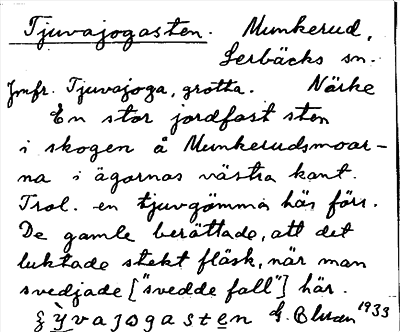 Tjuvajogasten. Munkerud,
Lerbäcks sn.
Jmfr. Tjuvajoga, grotta. Närke
En stor jordfast sten
i skogen å Munkerudsmoar-
na i ägornas västra kant.
Trol. en tjuvgömma här förr.
De gamle berättade, att det
luktade stekt fläsk, när man
svedjade ["svedde fall"] här.
G. 1933